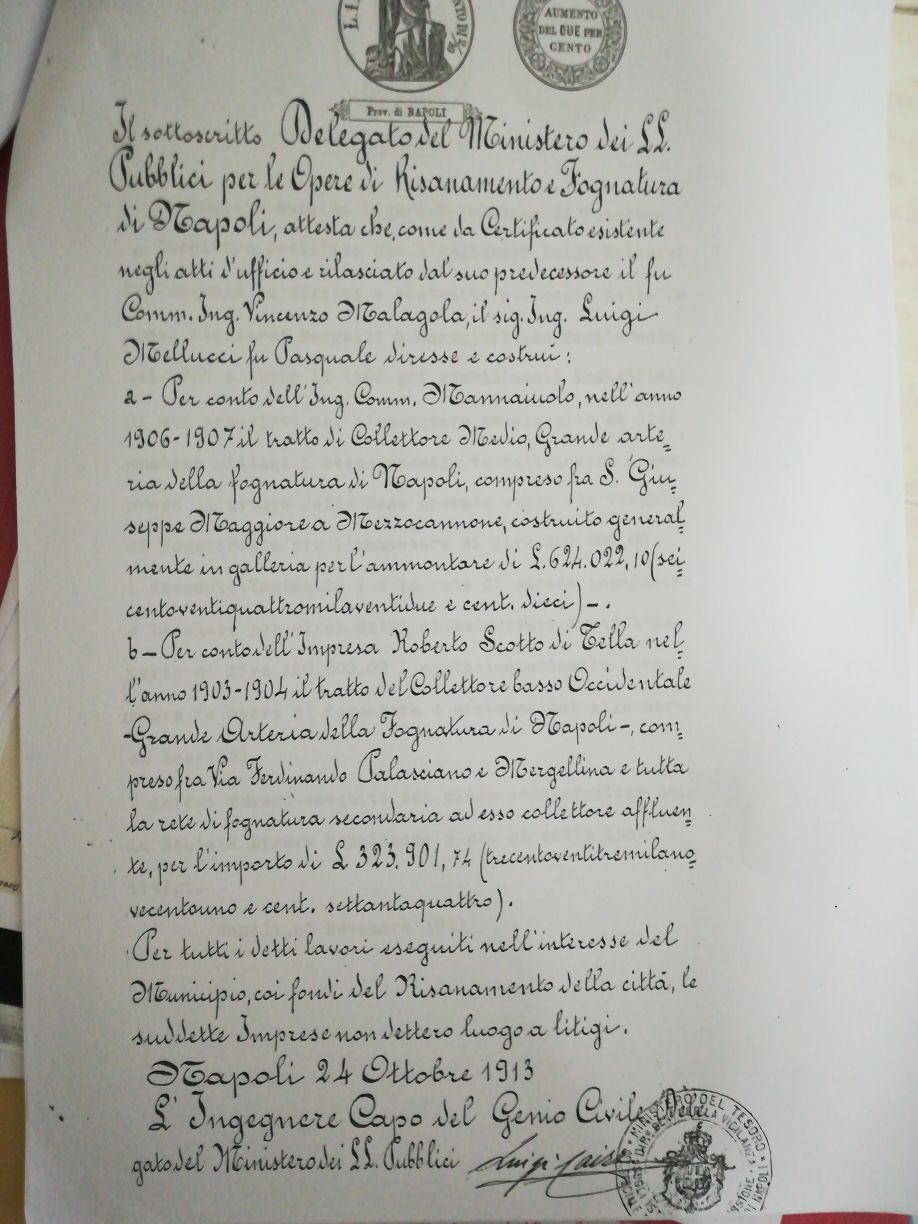 AUMENTO
DEL DUE PER
CENTO
Prov. di NAPOLI
Il sottoscritto Delegato del Ministero dei LL.
Pubblici per le Opere di Risanamento e Fognatura
di Napoli, attesta che, come da Certificato esistente
negli atti d'ufficio e rilasciato dal suo predecessore il fu
Comm. Ing. Vincenzo Malagola, il sig. Ing. Luigi
Mellucci fu Pasquale diresse e costruì:
a - Per conto dell'Ing. Comm. Mannaiuolo, nell'anno
1906-1907 il tratto di Collettore Medio, Grande arte=
ria della fognatura di Napoli, compreso fra S. Giu=
seppe Maggiore a Mezzocannone, costruito general=
mente in galleria per l'ammontare di L. 624.022,10 (sei=
centoventiquattromilaventidue e cent. dieci) - .
b - Per conto dell'Impresa Roberto Scotto di Tella nel=
l'anno 1903-1904 il tratto del Collettore basso Occidentale
-Grande Arteria della Fognatura di Napoli-, com=
preso fra Via Ferdinando Palasciano e Mergellina e tutta
la rete di fognatura secondaria ad esso collettore affluen=
te, per l'importo di L 323.901,74 (trecentoventitremilano=
vecentouno e cent. settantaquattro).
Per tutti i detti lavori eseguiti nell'interesse del
Municipio, coi fondi del Risanamento della città, le
suddette Imprese non dettero luogo a litigi.
Napoli 24 Ottobre 1913
L'Ingegnere Capo del Genio Civile
gato del Ministero dei LL. Pubblici Luigi
MINISTERO DEL TESORO
DELLA VIGILANZA
NAPOLI